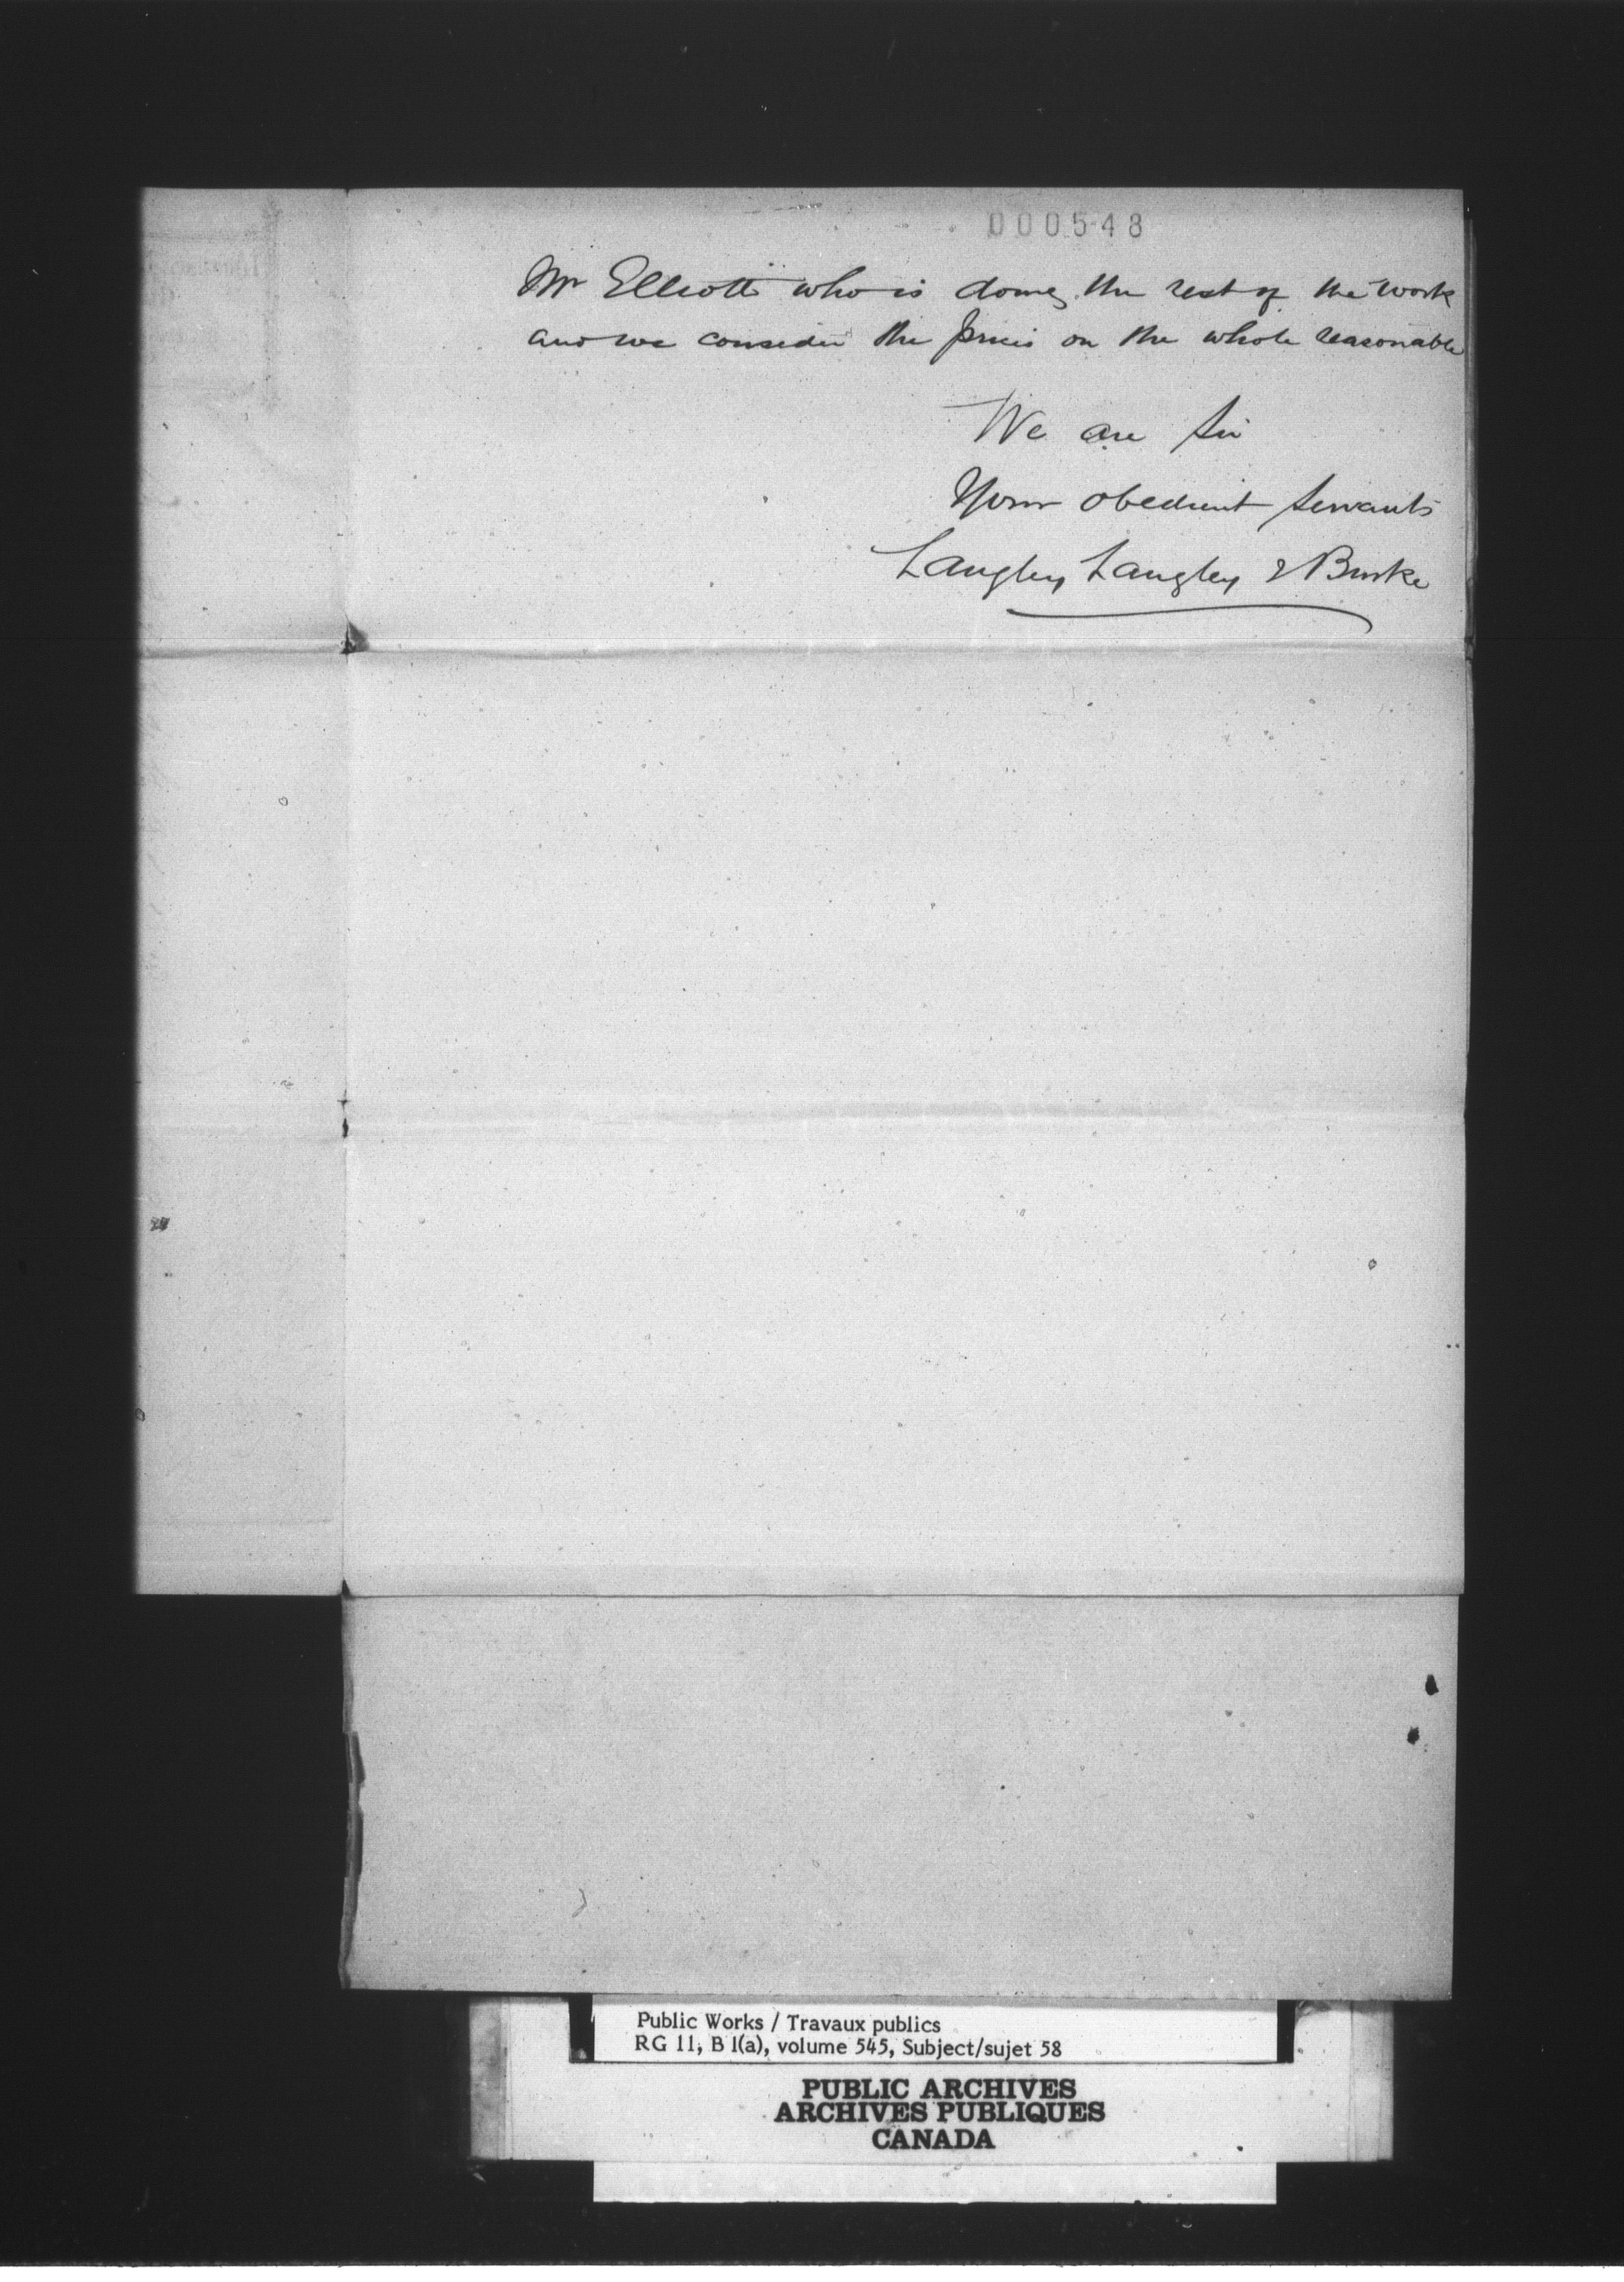 000548
Mr Elliott who is doing the rest of the work
and we consider the prices on the whole reasonable
We are Sir
Your obedient Servants
Langley Langley & Burke
Public Works / Travaux publics
RG 11, B 1(a), volume 545, Subject/sujet 58
PUBLIC ARCHIVES
ARCHIVES PUBLIQUES
CANADA